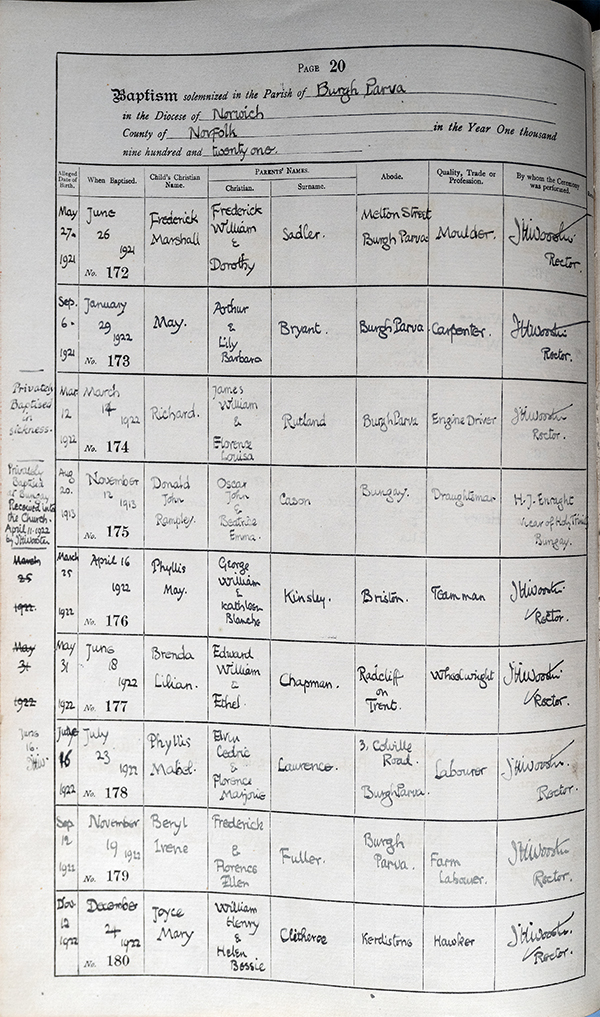 PAGE 20
Baptism solemnized in the Parish of Burgh Parva
in the Diocese of Norwich
County of Norfolk in the Year One thousand
nine hundred and twenty one.
Alleged Date of Birth.
When Baptised.
Child's Christian Name.
PARENTS' NAMES.
Christian.
Surname.
Abode.
Quality, Trade or Profession.
By whom the Ceremony was performed.
May 27. 1921
June 26 1921
No. 172
Frederick Marshall
Frederick William & Dorothy
Sadler.
Melton Street Burgh Parva
Moulder.
Rector.
Sep. 6. 1921
January 29 1922
No. 173
May.
Arthur & Lily Barbara
Bryant.
Burgh Parva.
Carpenter.
Rector.
Privately Baptised in sickness.
Mar 12 1922
March 14 1922
No. 174
Richard.
James William & Florence Louisa
Rutland
Burgh Parva
Engine Driver
Rector.
Privately Baptised at Bungay Received into the Church. April 11. 1922
Aug 20. 1913
November 12 1913
No. 175
Donald John Rampley.
Oscar John & Beatrice Emma.
Cason
Bungay.
Draughtsman
H. J. Enraght
Vicar of Holy Bungay.
March 25 1922
March 25 1922
April 16 1922
No. 176
Phyllis May.
George William & Kathleen Blanche
Kinsley.
Briston.
Teamman
Rector.
May 31 1922
May 31 1922
June 18 1922
No. 177
Brenda Lilian.
Edward William & Ethel.
Chapman.
Radcliff on Trent.
Wheelwright
Rector.
June 16.
June 16 1922
July 23 1922
No. 178
Phyllis Mabel.
Cedric & Florence Marjorie
Lawrence.
3, Colville Road. Burgh Parva.
Labourer
Rector.
Sep 12 1922
November 19 1922
No. 179
Beryl Irene
Frederick & Florence Ellen
Fuller.
Burgh Parva.
Farm Labourer.
Rector.
Nov. 12 1922
December 24 1922
No. 180
Joyce Mary
William Henry & Helen Bessie
Clitheroe
Kerdistone
Hawker
Rector.